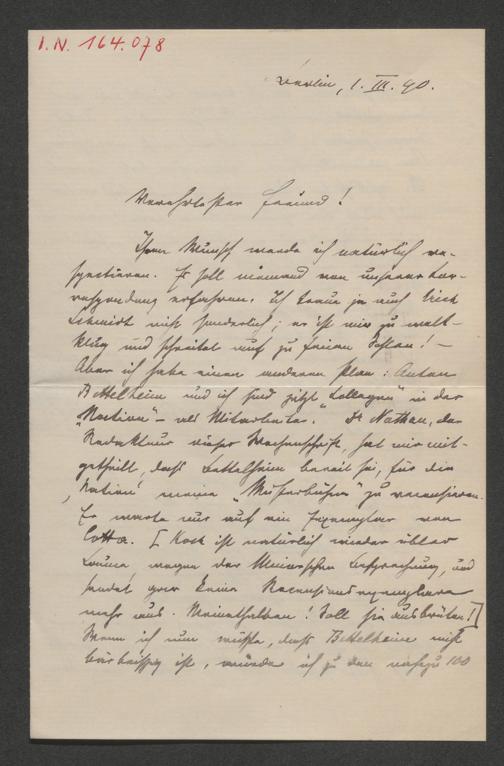 I.N. 164.078
Berlin, 1. III. 90.
Verehrtester Freund!
Ihren Wunsch werde ich natürlich re-
spectieren. Es soll niemand von unserer Cor-
respondenz erfahren. Ich traue ja auch Erich
Schmidt nicht sonderlich; er ist mir zu welt-
klug und schreitet auf zu feinen Sohlen! –
Aber ich habe einen anderen Plan: Anton
Bettelheim und ich sind jetzt "Collegen" in der
"Nation" – als Mitarbeiter. Dr Nathan, der
Redakteur dieser Wochenschrift, hat mir mit-
getheilt, daß Bettelheim bereit sei, für die
"Nation" meine "                " zu recensieren.
Er warte nur auf ein Exemplar von
Cotta. [Koch ist natürlich wieder übler
Laune wegen der             Besprechung, und
sendet gar keine Recensionsexemplare
mehr aus. Meinethalben! Soll sie ausbrüten!]
Wenn ich nun wüßte, daß Bettelheim nicht
bärbeißig ist, würde ich zu den nahezu 100